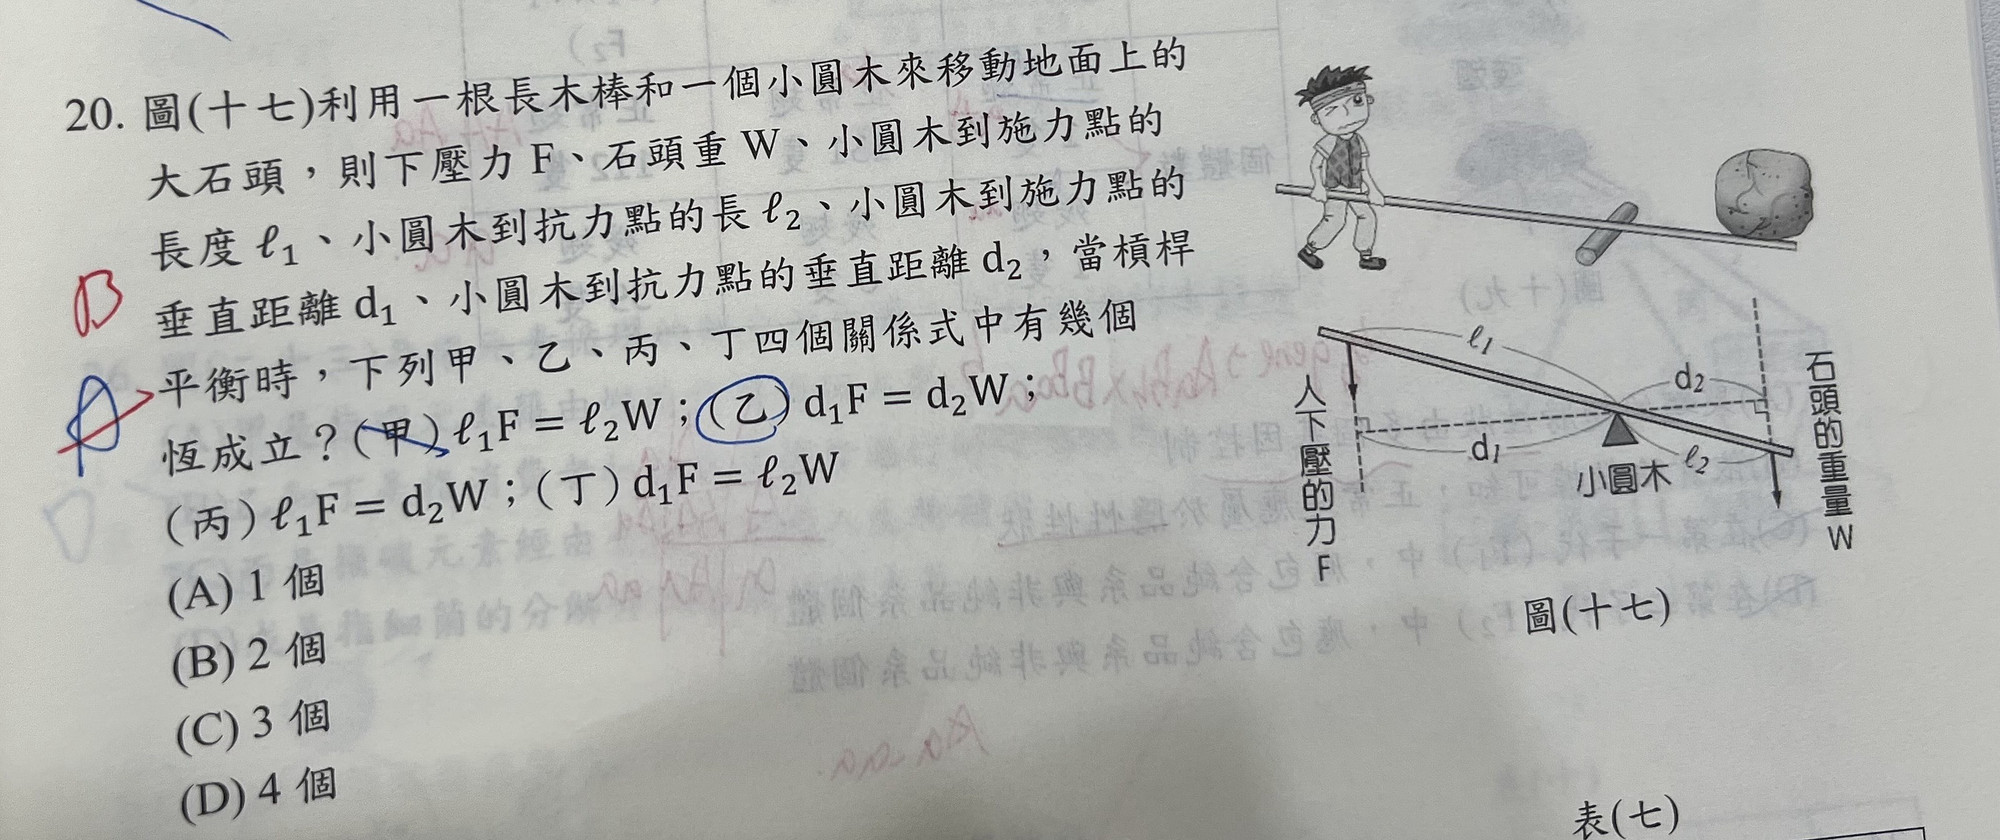 20. 圖(十七)利用一根長木棒和一個小圓木來移動地面上的
大石頭，則下壓力 F、石頭重 W、小圓木到施力點的
長度 ℓ₁、小圓木到抗力點的長 ℓ₂、小圓木到施力點的
垂直距離 d₁、小圓木到抗力點的垂直距離 d₂，當槓桿
平衡時，下列甲、乙、丙、丁四個關係式中有幾個
恆成立？(甲) ℓ₁F = ℓ₂W；(乙) d₁F = d₂W；
(丙) ℓ₁F = d₂W；(丁) d₁F = ℓ₂W
(A) 1 個
(B) 2 個
(C) 3 個
(D) 4 個
B
A
ℓ₁
d₂
d₁
ℓ₂
小圓木
人下壓的力 F
石頭的重量 W
圖(十七)
表(七)